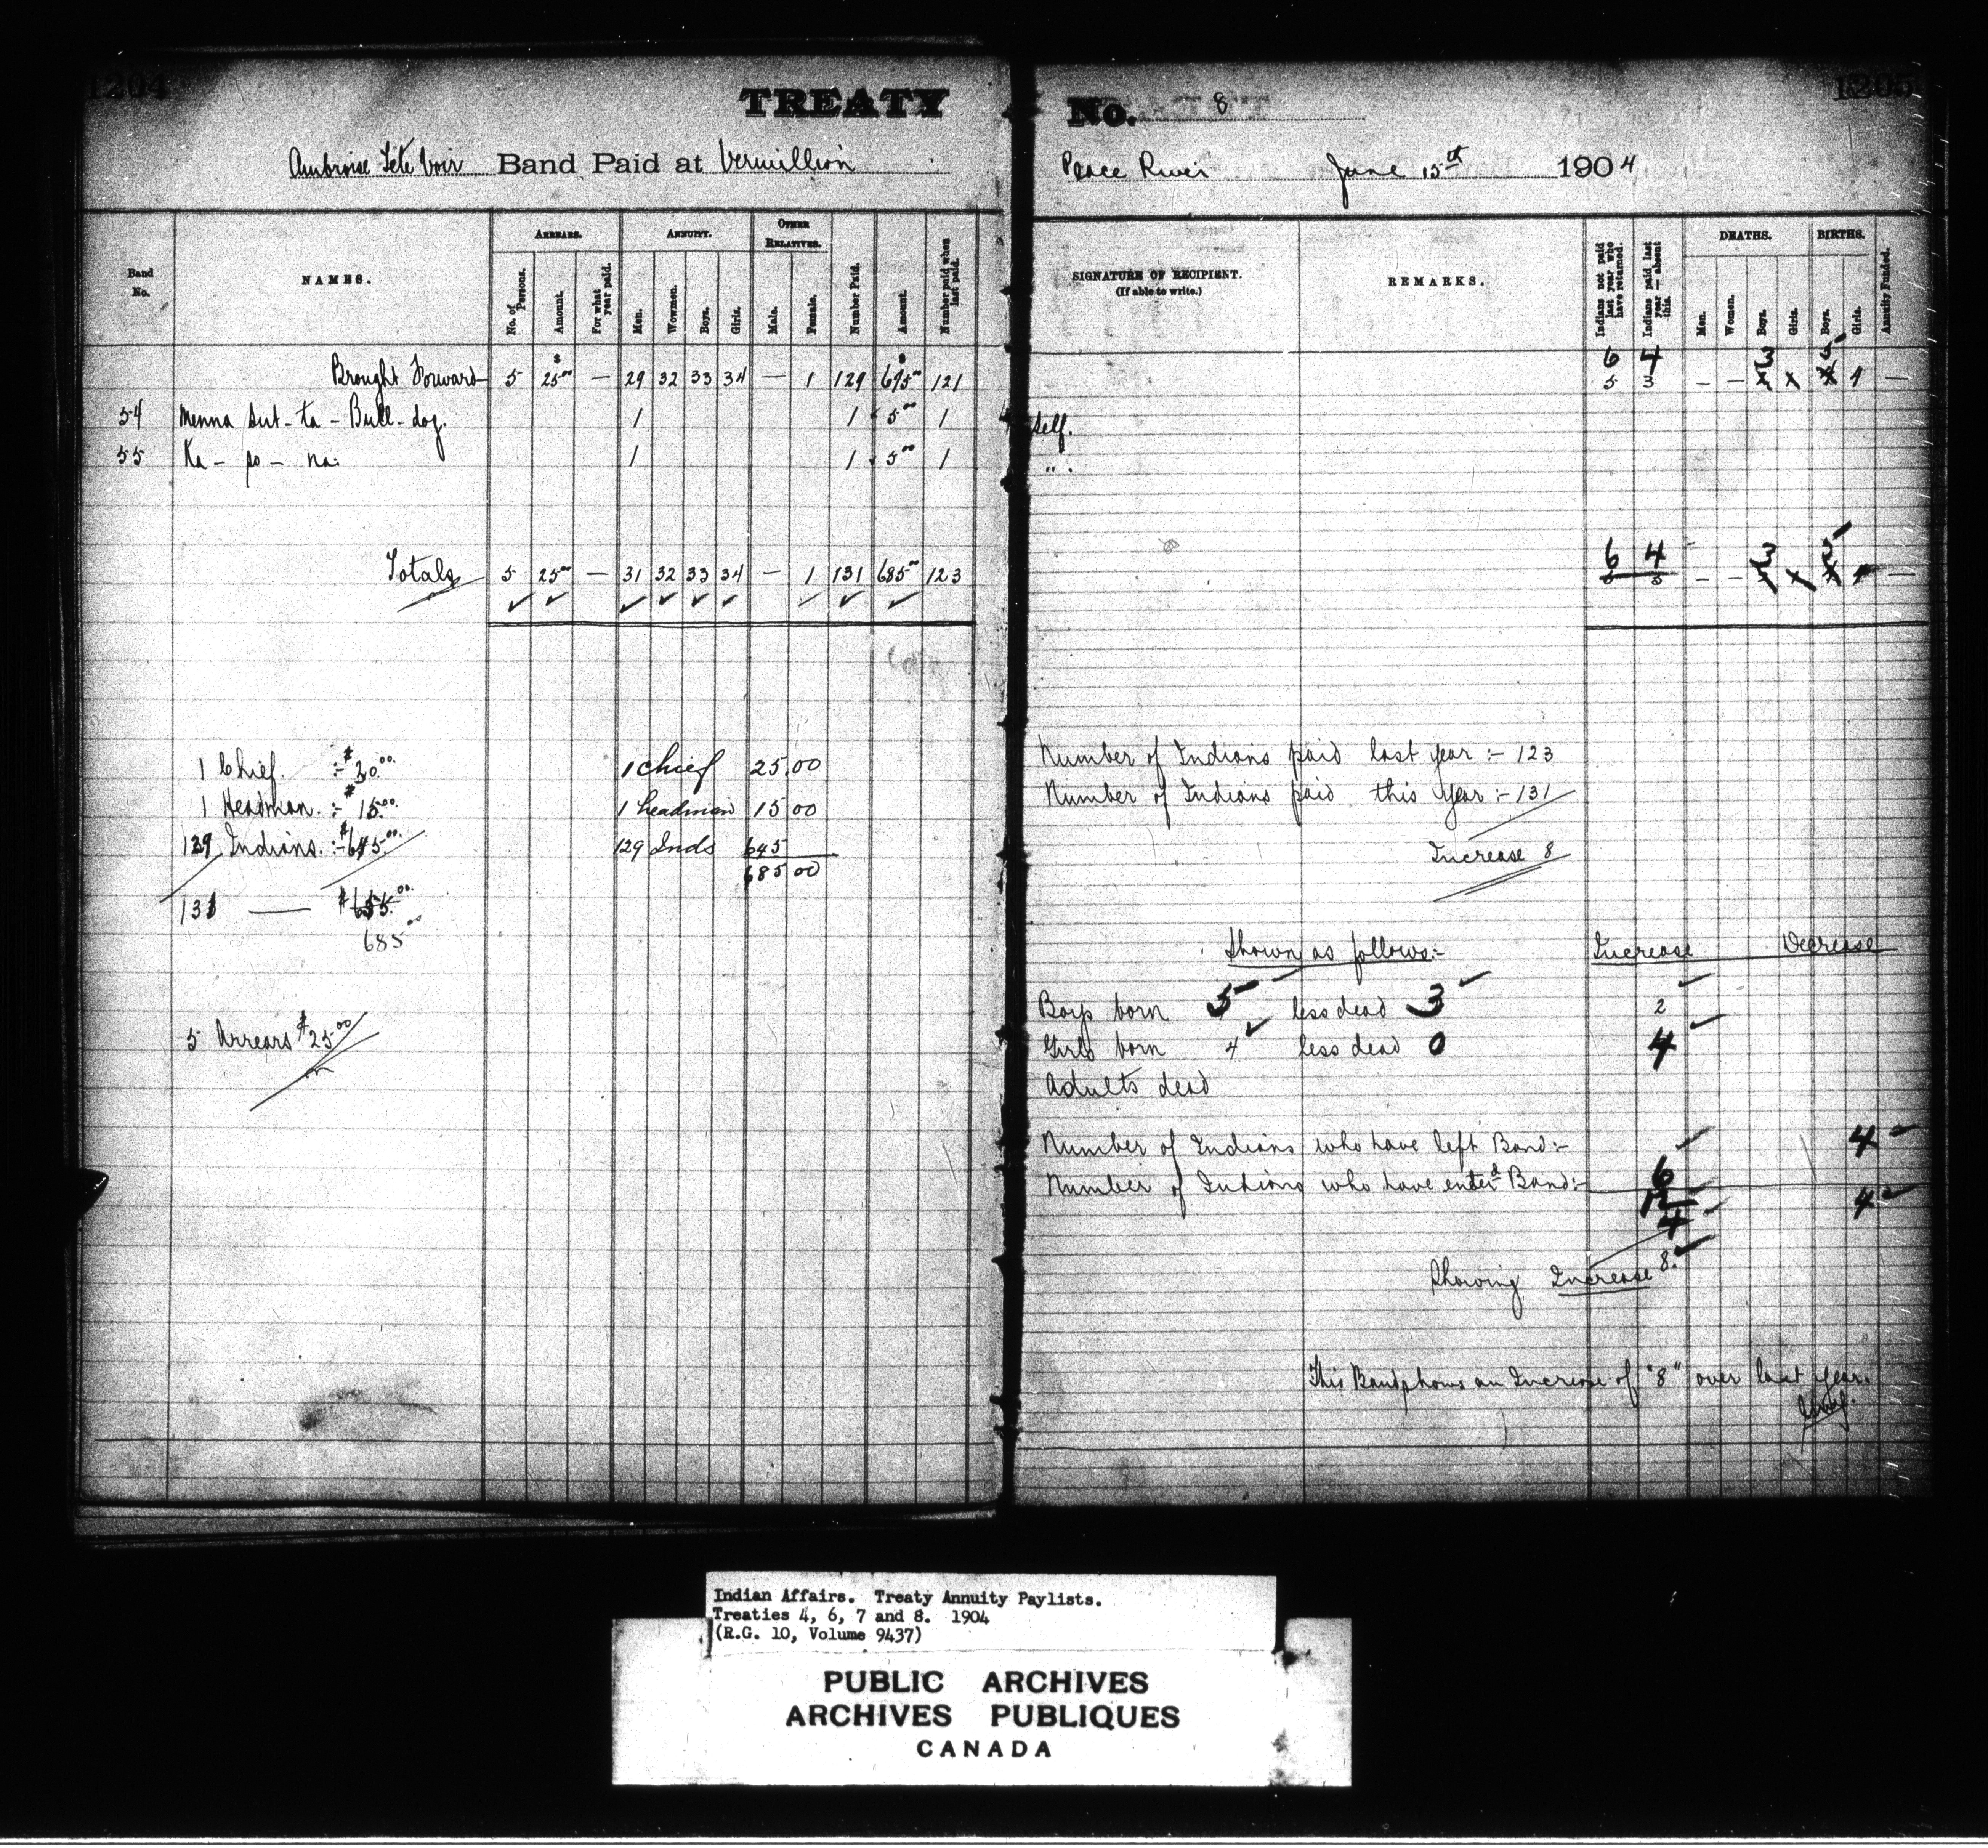 1204
TREATY
Ambroise Tete Noir Band Paid at Vermillion
Band No.
NAMES.
ARREARS.
No. of Persons.
Amount.
For what year paid.
ANNUITY.
Men.
Wowmen.
Boys.
Girls.
OTHER RELATIVES.
Male.
Female.
Number Paid.
Amount.
Number paid when last paid.
$ $
Brought Forward 5 25.00 — 29 32 33 34 — 1 129 675.00 121
54 Menna sut-ta-Bull-dog. 1 1 5.00 1
55 Ka-po-na. 1 1 5.00 1
Totals 5 25.00 — 31 32 33 34 — 1 131 685.00 123
1 Chief. :- $20.00 1 Chief 25.00
1 Headman. :- $15.00 1 headman 15 00
129 Indians. :- $645.00 129 Inds 645
685 00
131 — $655.00
685.00
5 Arrears $25.00
1205
No. 8
Peace River June 15th 1904
SIGNATURE OF RECIPIENT.
(If able to write.)
REMARKS.
Indians not paid last year who have returned.
Indians paid last year — absent this.
DEATHS.
Men.
Women.
Boys.
Girls.
BIRTHS.
Boys.
Girls.
Annuity Funded.
6 4 3
5 3 — — x x x 4 —
Self.
" .
6 4 3
5 3 — — x x 4 —
Number of Indians paid last year :- 123
Number of Indians paid this year :- 131
Increase 8
Shown as follows:- Increase Decrease
Boys born 5 less dead 3 2
Girls born 4 less dead 0 4
Adults dead
Number of Indians who have left Band:- 4
Number of Indians who have enterd Band:- 6
12 4
4
Showing Increase 8.
This Band shows an Increase of "8" over last year.
Indian Affairs. Treaty Annuity Paylists.
Treaties 4, 6, 7 and 8. 1904
(R.G. 10, Volume 9437)
PUBLIC ARCHIVES
ARCHIVES PUBLIQUES
CANADA